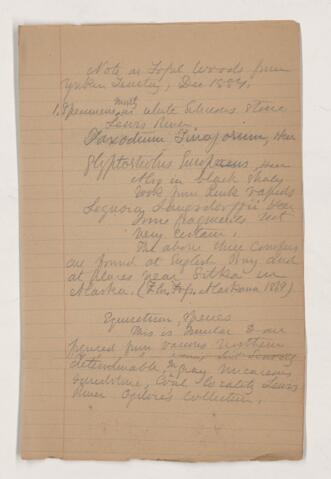 Note on Fossil Woods from
Yukon Territory, Dec 1887.
1. Specimens mostly in white siliceous stone
Lewis River.
Taxodium Tinajorum, Heer
Glyptostrobus Europaeus, Heer
Also in black shaly
rock from Rink rapids
Sequoia Langsdorffii Heer
Some fragments not
very certain.
The above three Conifers
are found at English Bay and
at places near Sitka in
Alaska. (Flor. Fos. Alaskana 1869)
Equisetum, Species
This is similar to one
figured from various northern
determinable, In gray micaceous
sandstone, Coal locality Lewis
River Ogilvie's Collection.